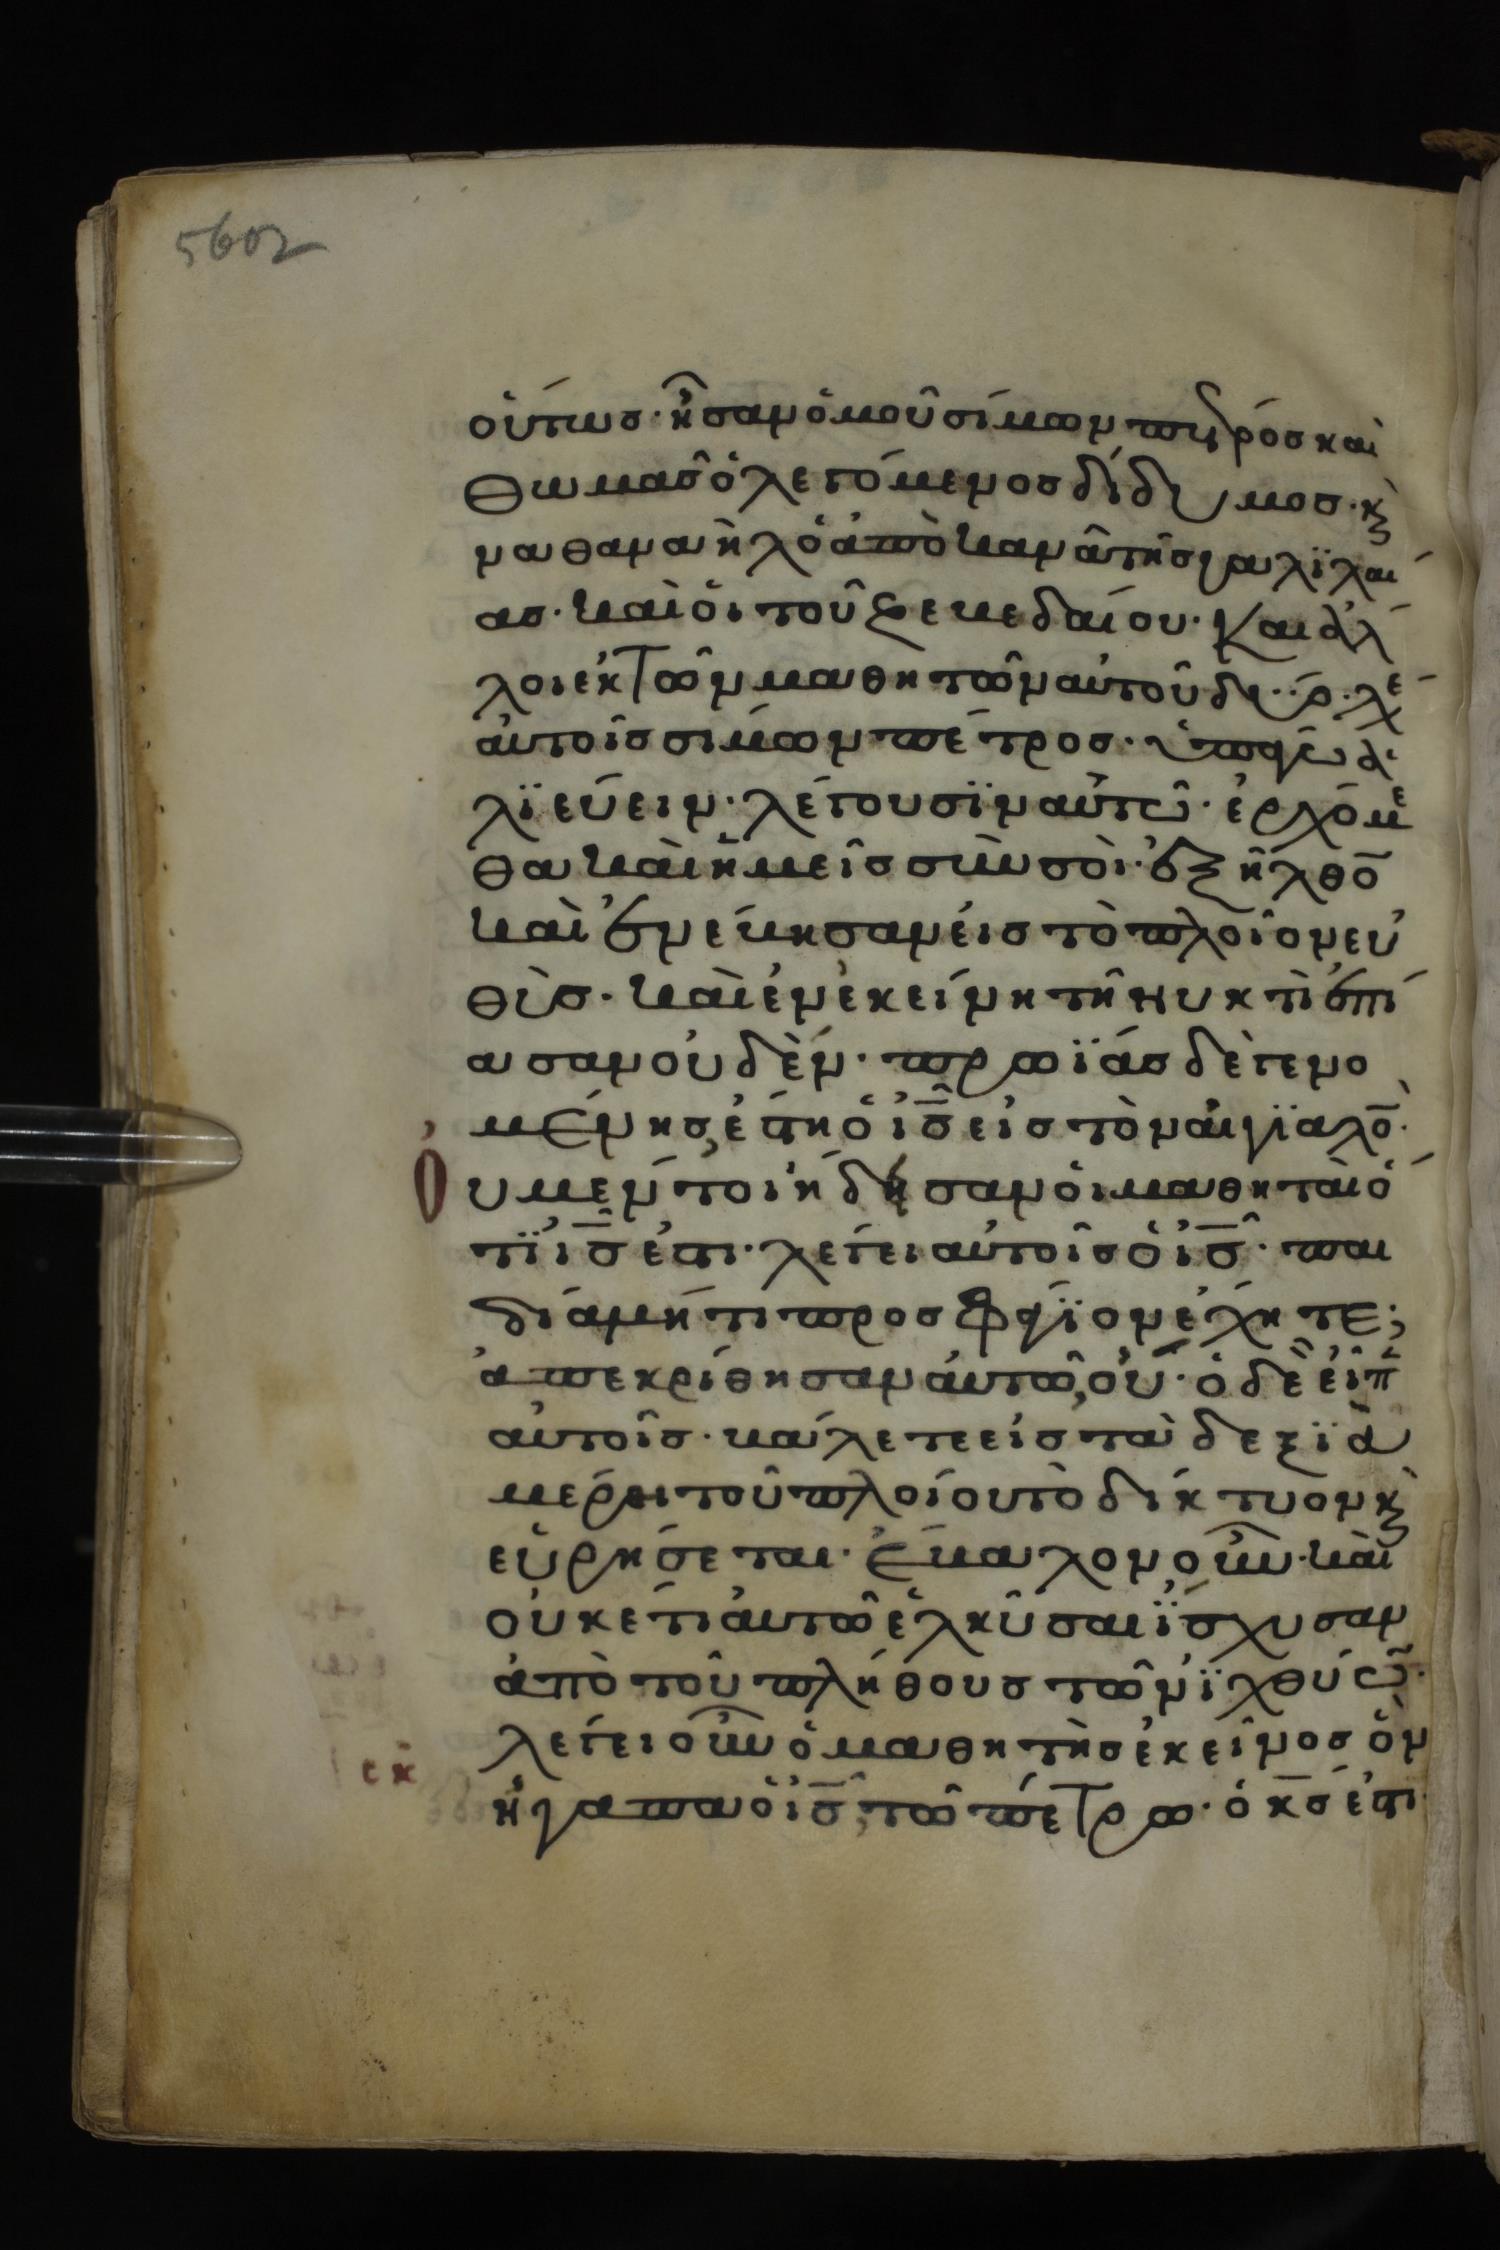 5602
οὕτως· ἦσαν ὁμοῦ σίμων πέτρος καὶ
θωμᾶς ὁ λεγόμενος δίδυμος· κ
ναθαναὴλ ὁ ἀπὸ κανᾶ τῆς γαλϊλαί
ας· καὶ ὁι τοῦ ζεβεδαίου· καὶ ἄλ
λοι ἐκ τῶν μαθητῶν αὐτοῦ δύο· λέ
αὐτοῖς σίμων πέτρος· ὑπάγω ἁ
λϊεύειν· λέγουσϊν αὐτῶ· ἐρχόμε
θα καὶ ἡμεῖς σὺν σοὶ· ἐξῆλθο̄
καὶ ἐνέβησαν εἰς τὸ πλοῖον εὐ
θὺς· καὶ ἐν ἐκείνη τῆ νυκτὶ ἐπί
ασαν οὐδὲν· πρωϊάς δὲ γενο
μένης, ἔστη ὁ ις̄ εἰς τὸν αἰγϊαλο̄·
Ὀ
υ μέντοι ἤδησαν ὁι μαθηταὶ ὅ
τϊ ις̄ ἐστι· λέγει αὐτοῖς ὁ ις̄· παι
δία μήτι προσφάγϊον ἔχητε;
ἀπεκρίθησαν αὐτῶ, οὔ· ὁ δὲ εἶπ
αὐτοῖς· βάλετε εἰς τὰ δεξϊὰ
μέρει τοῦ πλοίου τὸ δίκτυον κ
εὑρήσεται· ἔβαλον οὖν· καὶ
οὐκέτι ἀυτῶ ἑλκῦσαι ΐσχυσαν
ἀπὸ τοῦ πλήθους τῶν ϊχθύω̄·
λέγει οὖν ὁ μαθητὴς ἐκεῖνος ὃν
ἠγάπα ὁ ις̄, τῶ πέτρω· ὁ κς̄ ἐστι·